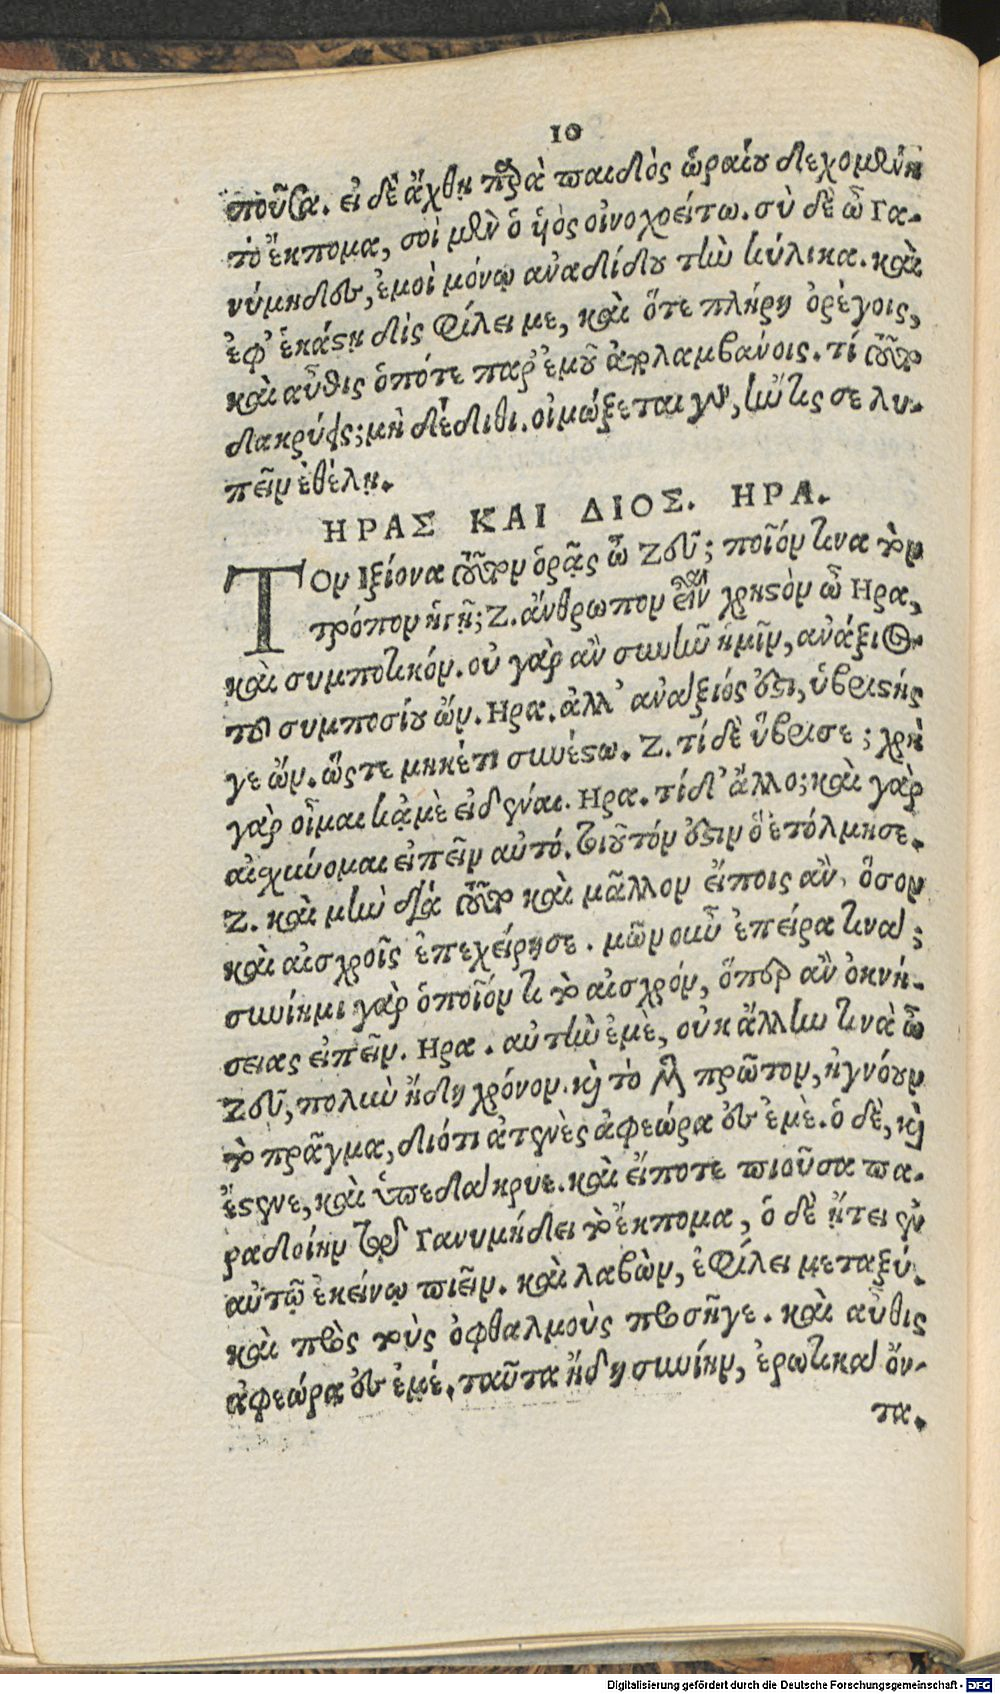 10
ποῦσα. εἰ δὲ ἄχθῃ παρὰ παιδὸς ὡραίου δεχομένη
τὸ ἔκπομα, σοὶ μὲν ὁ ὑὸς οἰνοχοείτω. σὺ δὲ ὦ Γα-
νύμηδες, ἐμοὶ μόνῳ ἀναδίδου τὴν κύλικα. καὶ
ἐφ᾽ ἑκάστῃ δὶς φίλει με, καὶ ὅτε πλήρη ὀρέγοις,
καὶ αὖθις ὁπότε παρ᾽ ἐμοῦ ἀπολαμβάνοις. τί τοῦτο
δακρύεις; μὴ δέδιθι. οἰμώξεται γὰρ, ἤν τίς σε λυ-
πεῖν ἐθέλῃ.
ΗΡΑΣ ΚΑΙ ΔΙΟΣ. ΗΡΑ.
ΤΟν Ιξίονα τοῦτον ὁρᾷς ὦ Ζεῦ; ποῖόν τινα τὸν
τρόπον ἡγῇ; Ζ. ἄνθρωπον εἶναι χρηστὸν ὦ Ηρα,
καὶ συμποτικόν. οὐ γὰρ ἂν συνῆν ἡμῖν, ἀνάξιος
τοῦ συμποσίου ὤν. Ηρα. ἀλλ᾽ ἀνάξιός ἐστι, ὑβριστής
γε ὤν. ὥστε μηκέτι συνέστω. Ζ. τί δὲ ὕβρισε; χρὴ
γὰρ οἶμαι κᾀμὲ εἰδέναι. Ηρα. τί δ᾽ ἄλλο; καὶ γὰρ
αἰσχύνομαι εἰπεῖν αὐτό. τοιοῦτόν ἐστιν ὃ ἐτόλμησε.
Ζ. καὶ μὴν διὰ τοῦτο καὶ μᾶλλον εἴποις ἂν, ὅσον
καὶ αἰσχροῖς ἐπεχείρησε. μῶν οὖν ἐπείρα τινά;
συνίημι γὰρ ὁποῖόν τι τὸ αἰσχρόν, ὅπερ ἂν ὀκνή-
σειας εἰπεῖν. Ηρα. αὐτὴν ἐμὲ, οὐκ ἄλλην τινὰ ὦ
Ζεῦ, πολὺν ἤδη χρόνον. καὶ τὸ μὲν πρῶτον, ἠγνόουν
τὸ πρᾶγμα, διότι ἀτενὲς ἀφεώρα ἐς ἐμὲ. ὁ δὲ, καὶ
ἔστενε, καὶ ὑπεδάκρυε. καὶ εἴποτε πιοῦσα πα-
ραδοίην τῷ Γανυμήδει τὸ ἔκπομα, ὁ δὲ ᾔτει ἐν
αὐτῷ ἐκείνῳ πιεῖν. καὶ λαβὼν, ἐφίλει μεταξύ,
καὶ πρὸς τοὺς ὀφθαλμοὺς προσῆγε. καὶ αὖθις
ἀφεώρα ἐς ἐμέ. ταῦτα ἤδη συνίην, ἐρωτικὰ ὄν-
τα.
Digitalisierung gefördert durch die Deutsche Forschungsgemeinschaft - DFG